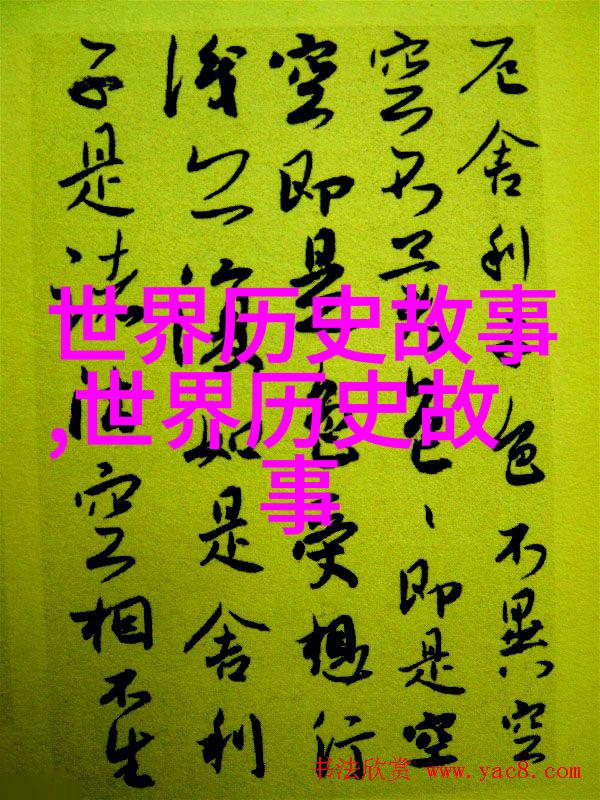 厄舍利子色不異空
空不異色、即是空
空即是色受想行
識亦復如是舍利
子是諸法空相不生
世界历史故事
,世界历史故
事
书法欣赏 www.yac8.com